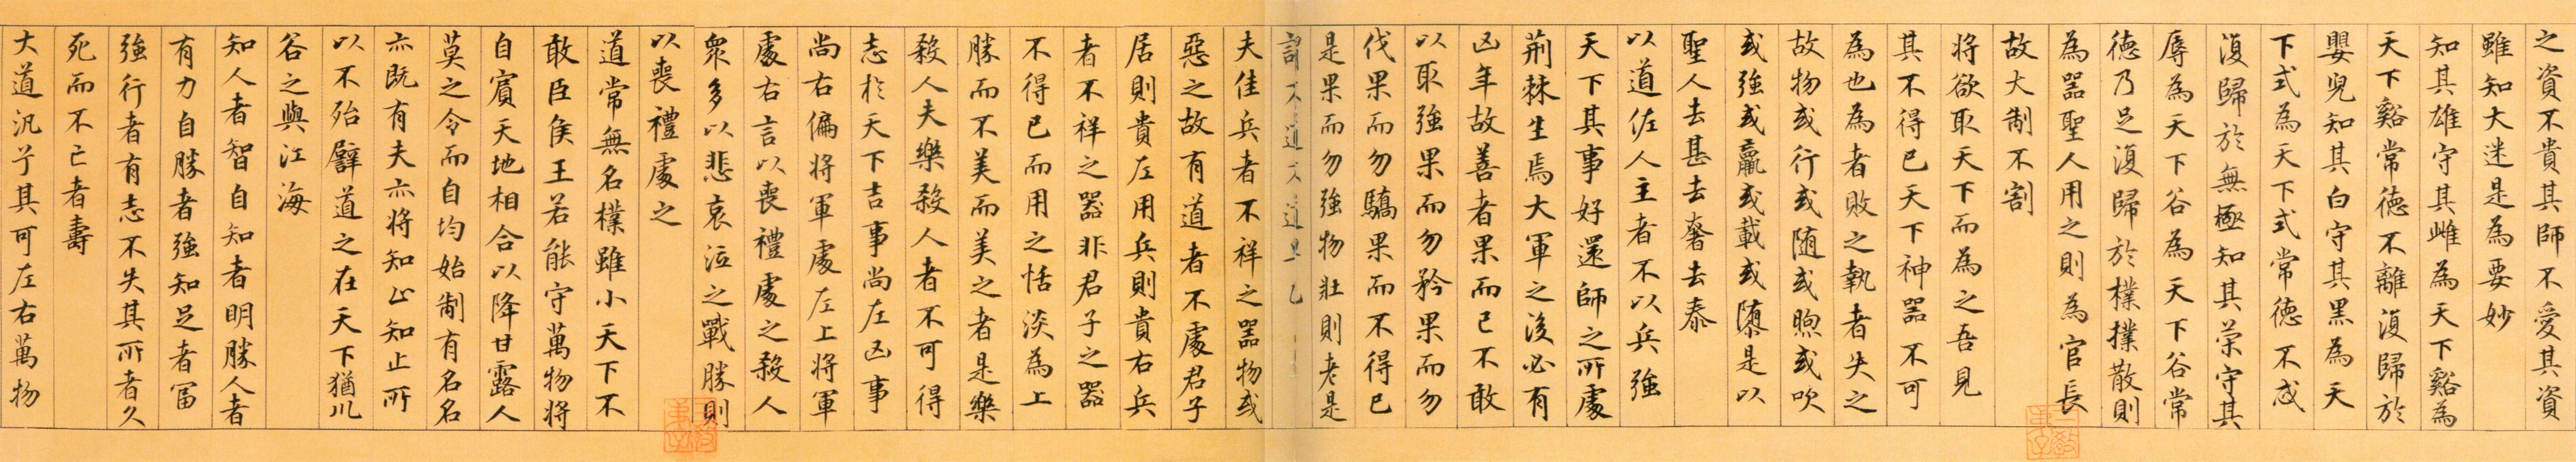 之資不貴其師不愛其資
雖知大迷是為要妙
知其雄守其雌為天下谿為
天下谿常德不離復歸於
嬰兒知其白守其黑為天
下式為天下式常德不忒
復歸於無極知其榮守其
辱為天下谷為天下谷常
德乃足復歸於樸撲散則
為器聖人用之則為官長
故大制不割
将欲取天下而為之吾見
其不得已天下神器不可
為也為者敗之執者失之
故物或行或随或煦或吹
或強或羸或載或隳是以
聖人去甚去奢去泰
以道佐人主者不以兵強
天下其事好還師之所處
荆棘生焉大軍之後必有
凶年故善者果而已不敢
以取強果而勿矜果而勿
伐果而勿驕果而不得已
是果而勿強物壯則老是
謂不道不道早已
夫佳兵者不祥之器物或
惡之故有道者不處君子
居則貴左用兵則貴右兵
者不祥之器非君子之器
不得已而用之恬淡為上
勝而不美而美之者是樂
殺人夫樂殺人者不可得
志於天下吉事尚左凶事
尚右偏将軍處左上将軍
處右言以喪禮處之殺人
眾多以悲哀泣之戰勝則
以喪禮處之
道常無名樸雖小天下不
敢臣侯王若能守萬物将
自賓天地相合以降甘露人
莫之令而自均始制有名名
亦既有夫亦将知止知止所
以不殆譬道之在天下猶川
谷之與江海
知人者智自知者明勝人者
有力自勝者強知足者富
強行者有志不失其所者久
死而不亡者壽
大道汎兮其可左右萬物